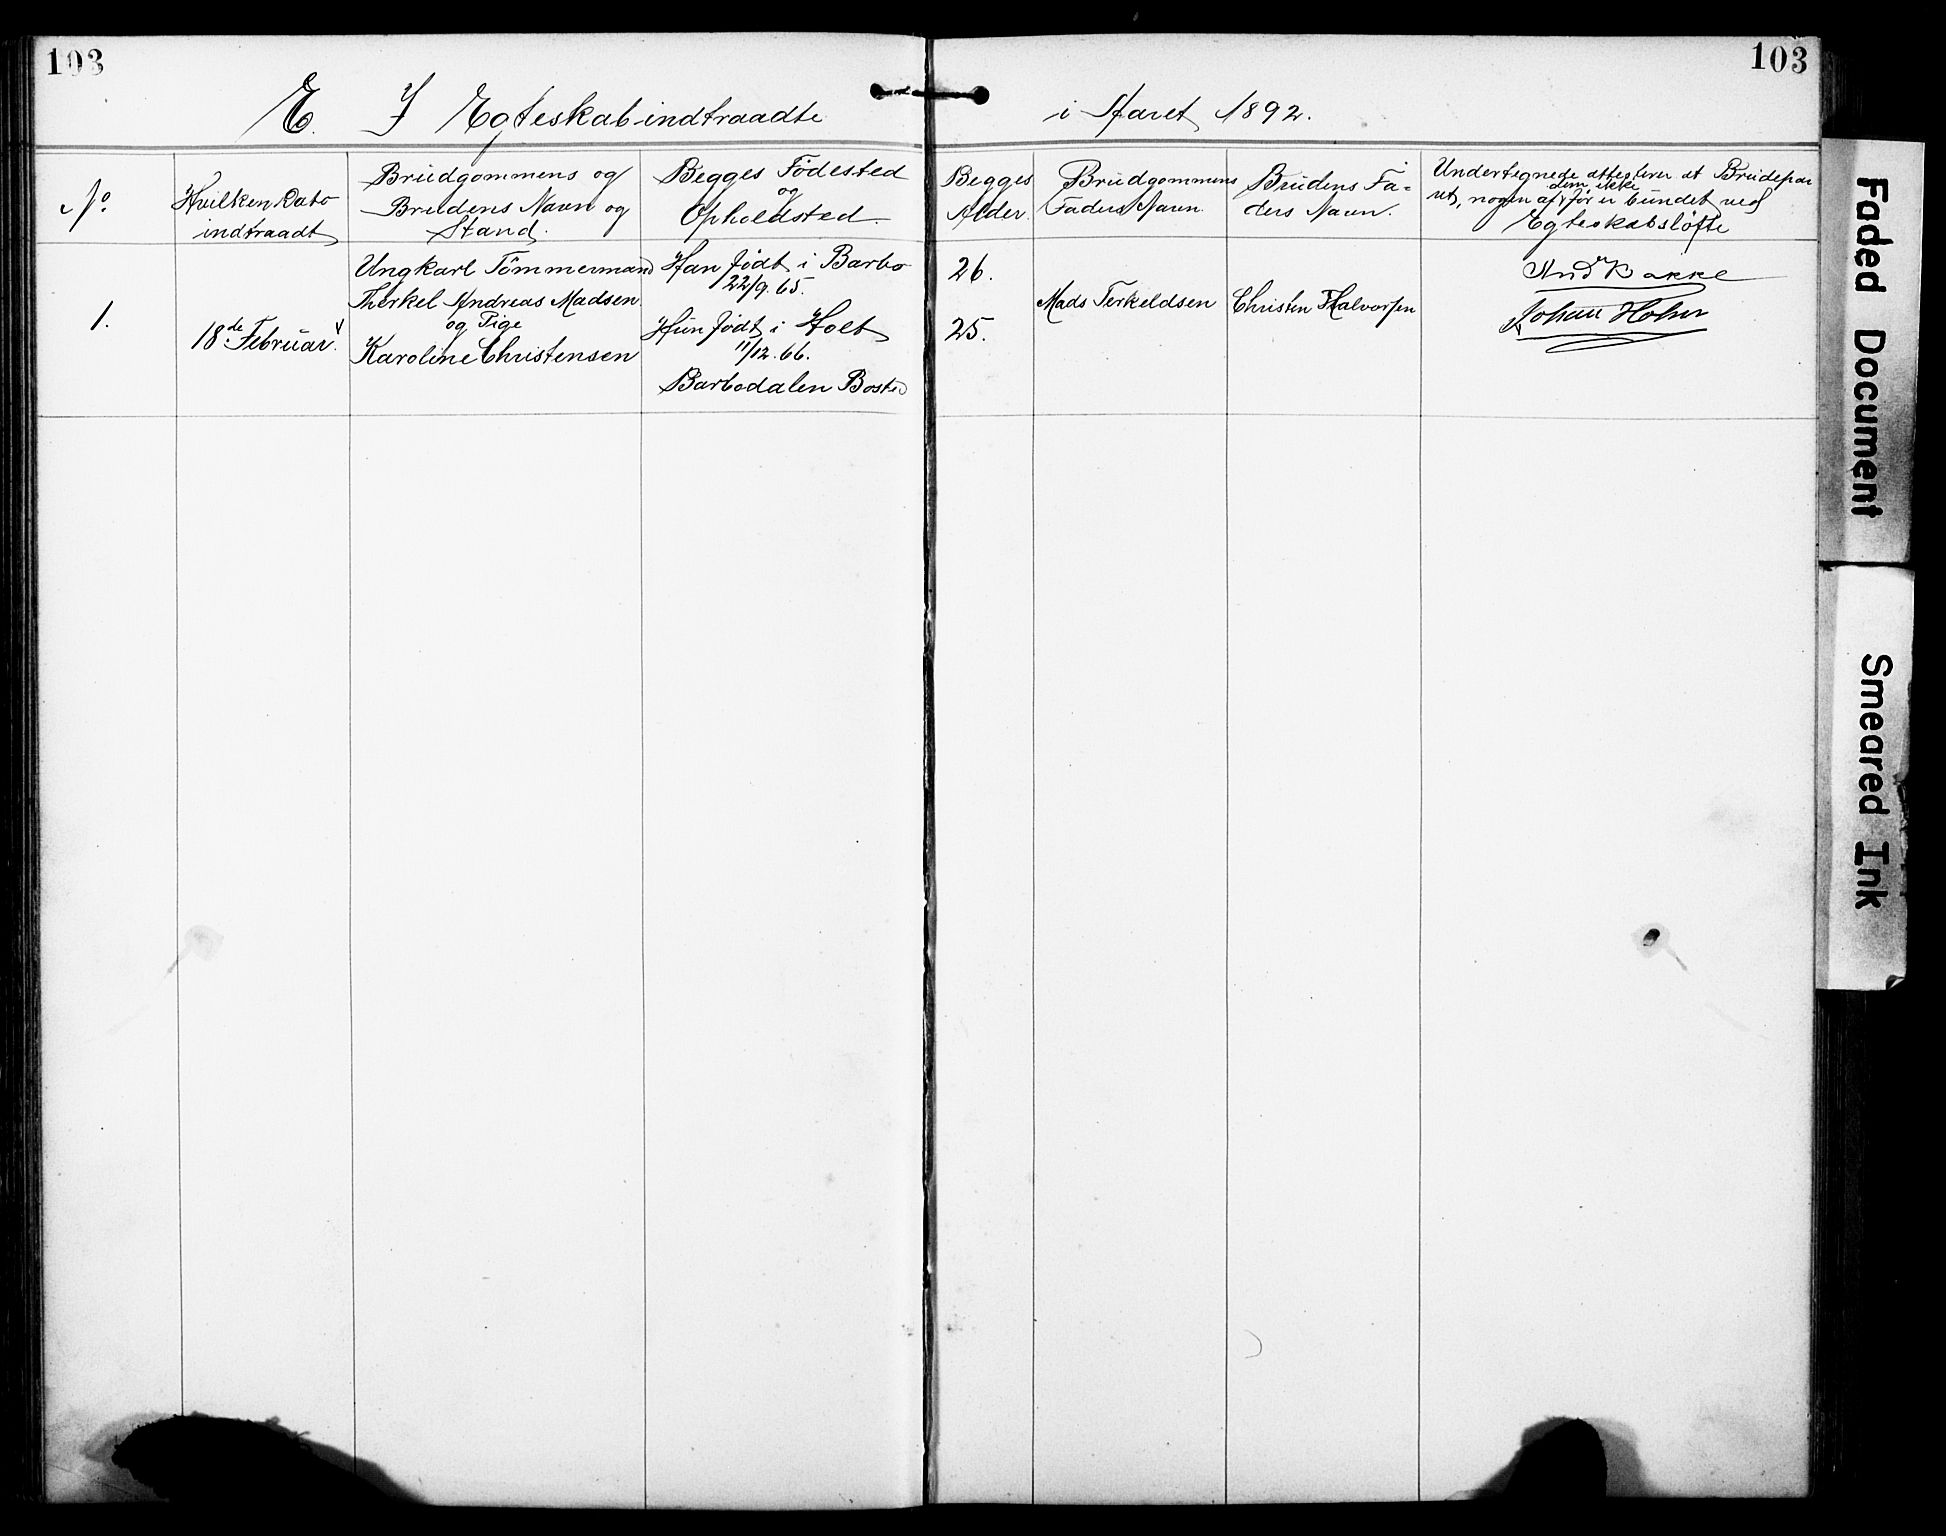 103
103
E. I Egteskab indtraadte i Aaret 1892.
No
Hvilken Dato
indtraadt
Brudgommens og
Brudens Navn og
Stand.
Begges Födested
og
Opholdsted.
Begges
Alder.
Brudgommens
Faders Navn
Brudens Fa-
ders Navn.
Undertegnede attesterer at Brudepar
ret, nogen af dem ikke før er bundet ved
Egteskabsløfte
1.
18de Februar.
Ungkarl Tömmermand
Therkel Andreas Madsen
og Pige
Karoline Christensen
Han født i Barbo
22/9. 65.
Hun født i Holt
11/12. 66.
Barbodalen Bosted
26.
25.
Mads Terkeldsen
Christen Halvorsen
And Bakke
Johan Holm
Faded Document
Smeared Ink